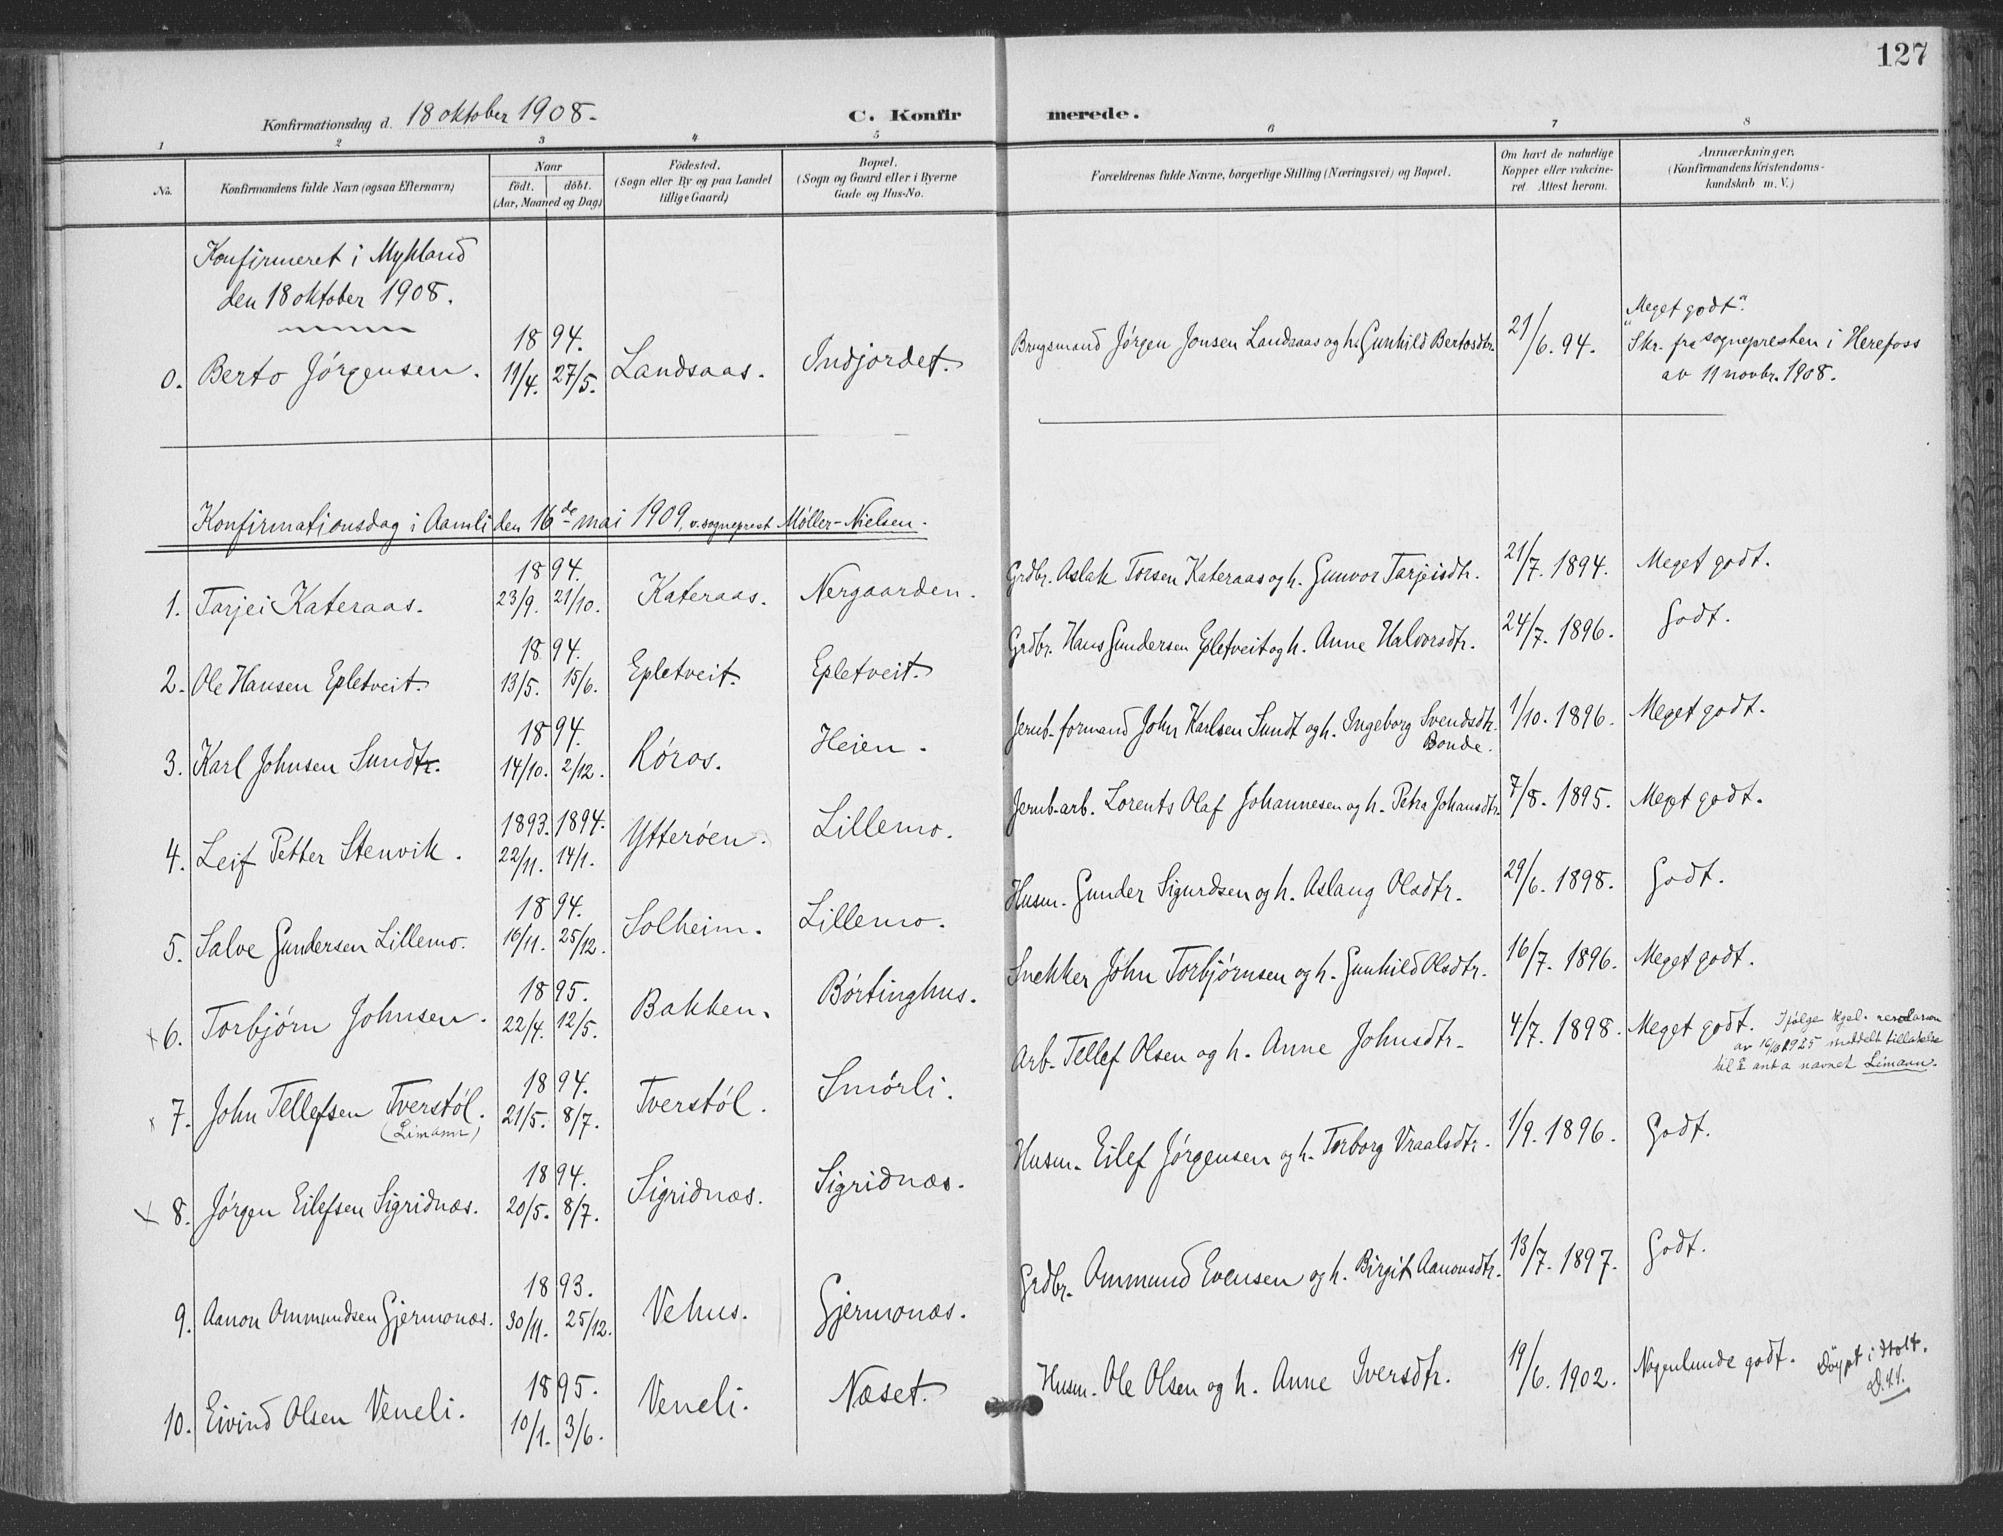 127
Konfirmationsdag d. 18 oktober 1908.
C. Konfirmerede.
1 2 3 4 5 6 7 8
No.
Konfirmandens fulde Navn (ogsaa Efternavn)
Naar
født. døbt.
(Aar, Maaned og Dag)
Fødested.
(Sogn eller By og paa Landet
tillige Gaard)
Bopæl.
(Sogn og Gaard eller i Byerne
Gade og Hus-No.
Forældrenes fulde Navne, borgerlige Stilling (Næringsvei) og Bopæl.
Om havt de naturlige
Kopper eller vakcine-
ret Attest herom.
Anmærkninger.
(Konfirmandens Kristendoms-
kundskab m. V.)
Konfirmeret i Mykland
den 18 oktober 1908.
0. Berto Jørgensen. 1894. 11/4. 27/5. Landsaas. Indjordet. Brugsmand Jørgen Jonsen Landsaas og h. Gunhild Bertosdtr. 21/6. 94. "Meget godt".
Skr. fra sognepresten i Herefoss
av 11 novbr. 1908.
Konfirmationsdag i Aamli den 16de mai 1909, v. sogneprest Møller-Nielsen.
1. Tarjei Kateraas. 1894. 23/9. 21/10. Kateraas. Nergaarden. Grdbr. Aslak Torsen Kateraas og h. Gunvor Tarjeisdtr. 21/7. 1894. Meget godt.
2. Ole Hansen Epletveit. 1894. 13/5. 15/6. Epletveit. Epletveit. Grdbr. Hans Gundersen Epletveit og h. Anne Halvorsdtr. 24/7. 1896. Godt.
3. Karl Johnsen Sundt. 1894. 14/10. 2/12. Røros. Heien. Jernb-formand John Karlsen Sundt og h. Ingeborg Svendsdtr.
Bonde. 1/10. 1896. Meget godt.
4. Leif Petter Stenvik. 1893. 1894. 22/11. 14/1. Ytterøen. Lillemo. Jernb-arb. Lorents Olaf Johannesen og h. Petra Johansdtr. 7/8. 1895. Meget godt.
5. Salve Gundersen Lillemo. 1894. 16/11. 25/12. Solheim. Lillemo. Husm. Gunder Sigurdsen og h. Aslaug Olsdtr. 29/6. 1898. Godt.
x 6. Torbjørn Johnsen. 1895. 22/4. 12/5. Bakken. Børtinghus. Snekker John Torbjørnsen og h. Gunhild Olsdtr. 16/7. 1896. Meget godt.
x 7. John Tellefsen Tverstøl.
(Limann) 1894. 21/5. 8/7. Tverstøl. Smørli. Arb. Tellef Olsen og h. Anne Johnsdtr. 4/7. 1898. Meget godt. Ifølge kgl. resolusion
av 1925 meddelt tillatelse
til å anta navnet Limann.
x 8. Jørgen Eilefsen Sigridnæs. 1894. 20/5. 8/7. Sigridnæs. Sigridnæs. Husm. Eilef Jørgensen og h. Torborg Vraalsdtr. 1/9. 1896. Godt.
9. Aanon Ommundsen Gjermonæs. 1893. 30/11. 25/12. Vehus. Gjermonæs. Grdbr. Ommund Evensen og h. Birgit Aanonsdtr. 13/7. 1897. Godt.
10. Eivind Olsen Veneli. 1895. 10/1. 3/6. Veneli. Næset. Husm. Ole Olsen og h. Anne Iversdtr. 19/6. 1902. Nogenlunde godt. Døypt i